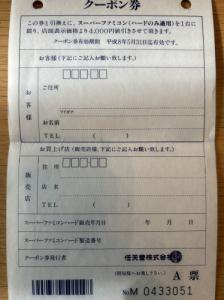 クーポン券
この券と引換えに、スーパーファミコン(ハードのみ適用)を1台に
限り、店頭表示価格より4,000円値引きさせて頂きます。
クーポン券有効期間 平成8年5月31日迄有効です。
お客様(下記にご記入お願い致します。)
お客様
ご住所
フリガナ
お名前
TEL ( )
お買上げ店(販売店様、下記にご記入お願い致します。)
販売店
住所
店名
TEL ( )
スーパーファミコンハード販売年月日 年 月 日
スーパーファミコンハード製造番号
クーポン券発行者 任天堂株式会社
A票
No M 0433051